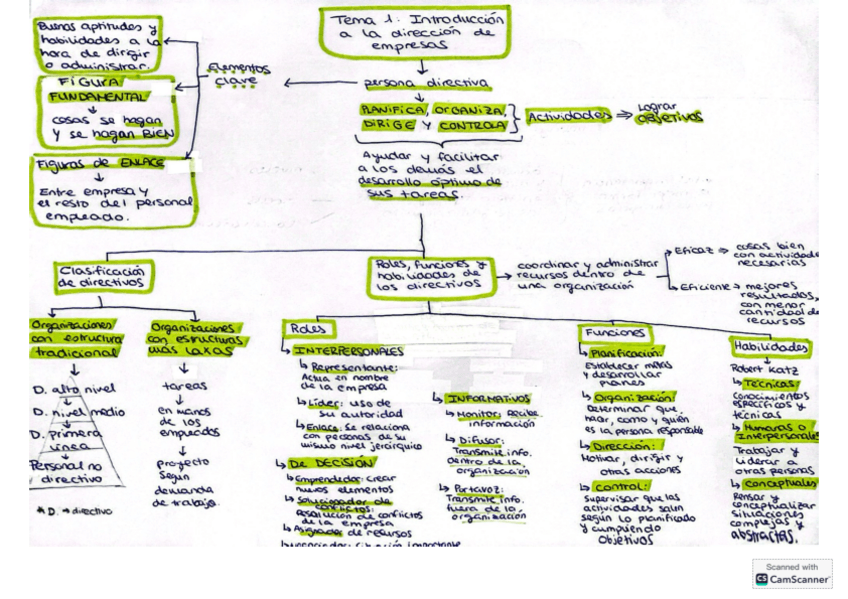 Tema 1. Introducción
a la dirección de
empresas
Buenas aptitudes y
habilidades a la
hora de dirigir
o administrar.
FIGURA
FUNDAMENTAL
cosas se hagan
y se hagan BIEN
Figuras de ENLACE
Entre empresa y
el resto del personal
empleado.
Elementos
clave
persona directiva
PLANIFICA, ORGANIZA,
DIRIGE Y CONTROLA
Actividades ⇒ Lograr
OBJETIVOS
Ayudar y facilitar
a los demás el
desarrollo óptimo de
sus tareas.
Clasificación
de directivos
Organizaciones
con estructura
tradicional
D. alto nivel
D. nivel medio
D. Primera
línea
Personal no
directivo
* D. → directivo
Organizaciones
con estructuras
más laxas
tareas
en manos
de los
empleados
proyecto
según
demanda
de trabajo.
Roles, funciones y
habilidades de
los directivos
coordinar y administrar
recursos dentro de
una organización
Eficaz ⇒ cosas bien
con actividades
necesarias
Eficiente → mejores
resultados,
con menor
cantidad de
recursos
Roles
INTERPERSONALES
Representante:
Actúa en nombre
de la empresa
Líder: uso de
su autoridad
Enlace: Se relaciona
con personas de su
mismo nivel jerárquico
DE DECISIÓN
Emprendedor: crear
nuevos elementos
Solucionador de
conflictos:
Resolución de conflictos
de la empresa
Asignador de recursos
INFORMATIVOS
Monitor: Recibe
información
Difusor:
Transmite info.
dentro de la
organización
Portavoz:
Transmite info.
fuera de la
organización
Funciones
Planificación:
Establecer metas
y desarrollar
planes
Organización:
Determinar que
hacer, como y quién
es la persona responsable
Dirección:
Motivar, dirigir y
otras acciones
Control:
Supervisar que las
actividades salen
según lo planificado
y cumpliendo
objetivos
Habilidades
Robert Katz
Técnicas
Conocimientos
específicos y
técnicas
Humanas o
Interpersonales
Trabajar y
liderar a
otras personas
Conceptuales
Pensar y
conceptualizar
situaciones
complejas y
abstractas.
Scanned with
CS CamScanner